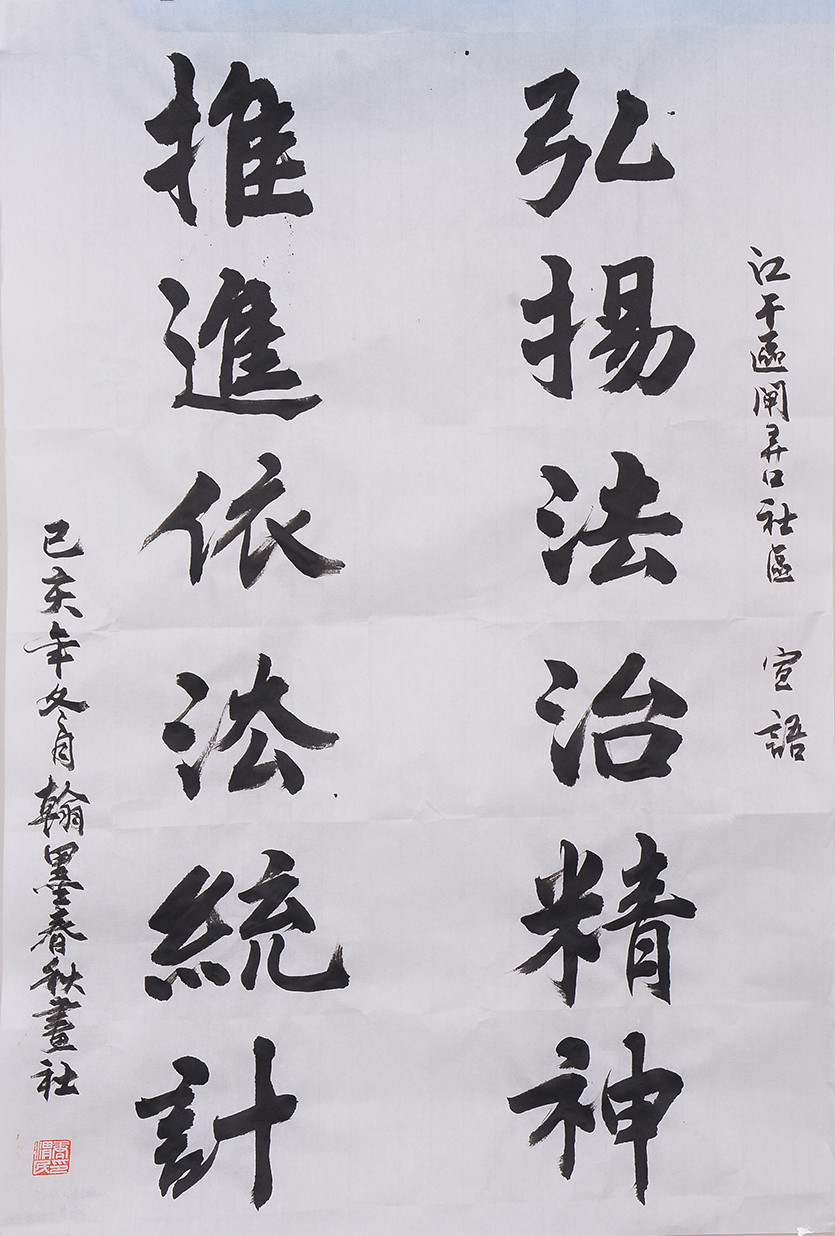 江干區闸弄口社區 宣語
弘揚法治精神
推進依法統計
己亥年冬月翰墨春秋畫社